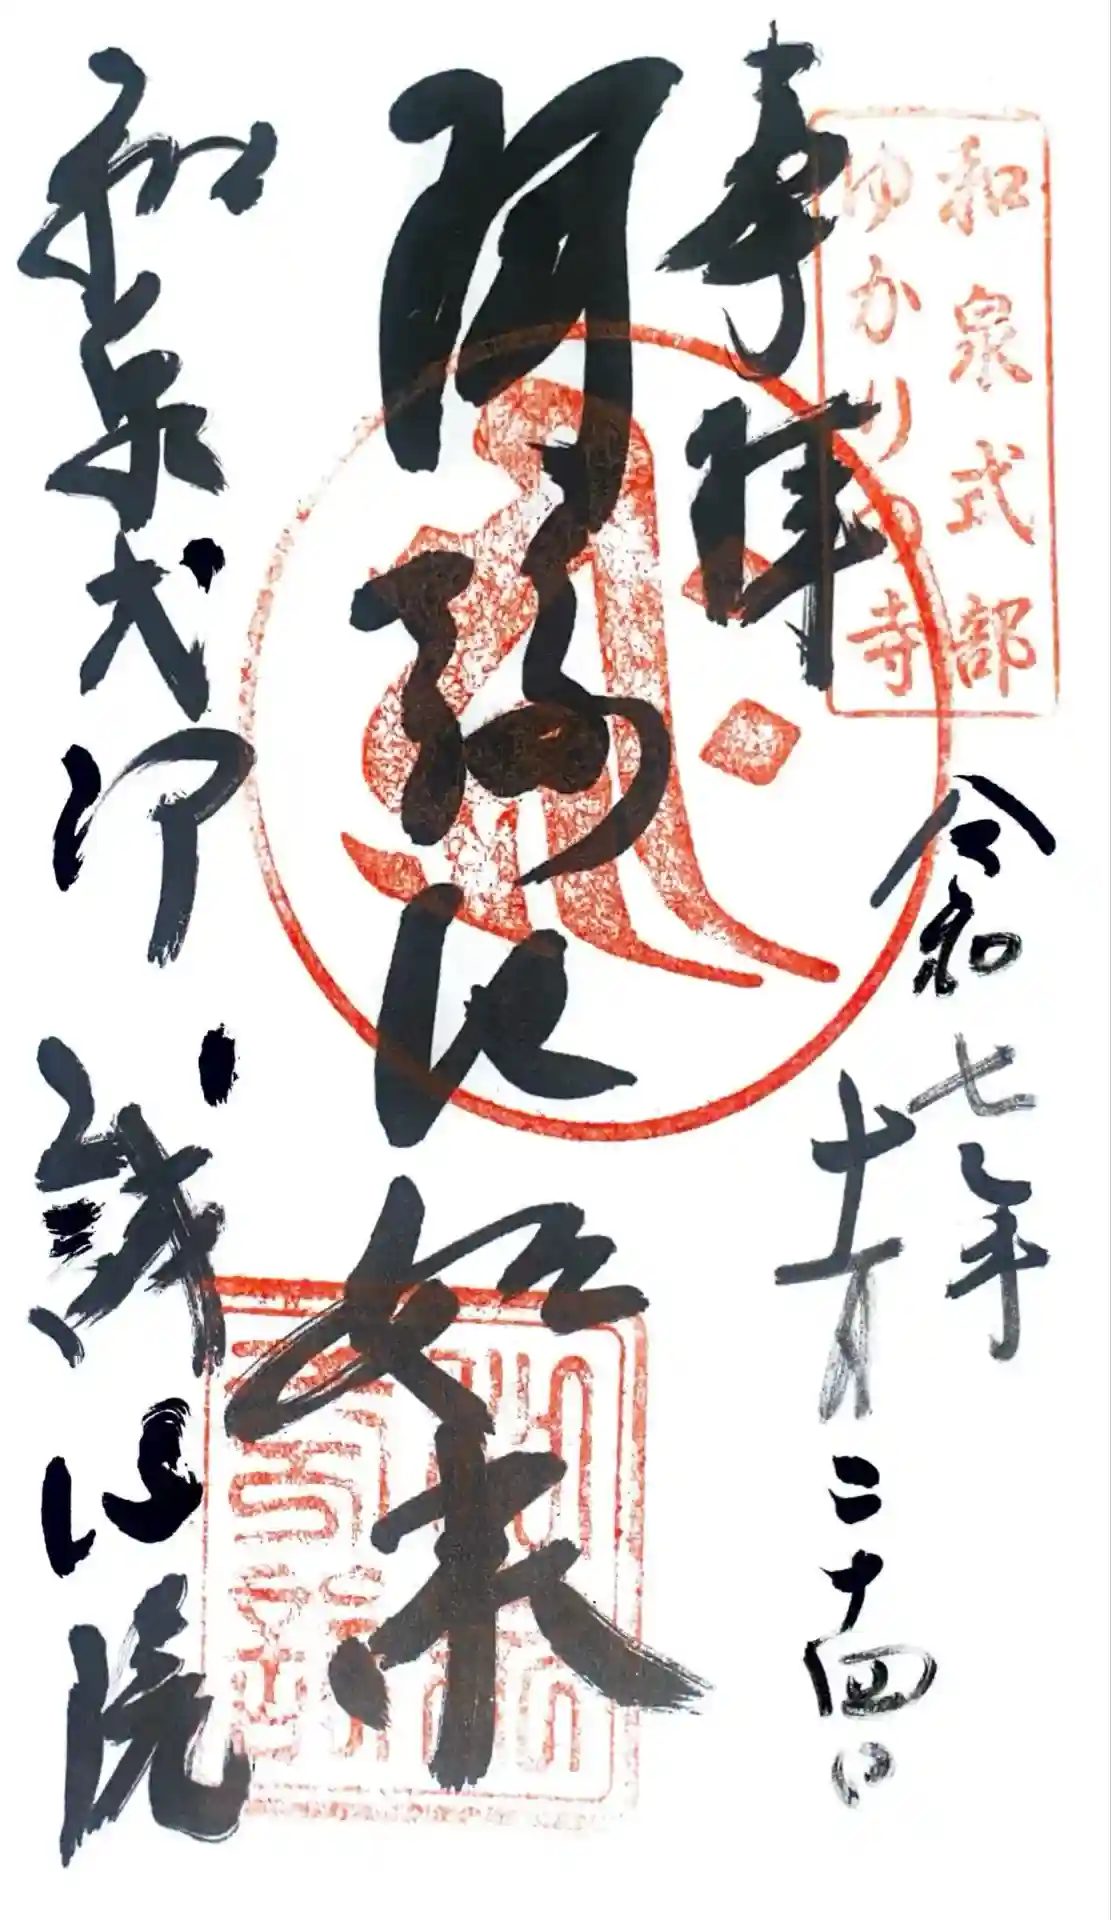 和泉式部
ゆかりの寺
奉拝
令和七年
十一月二十四日
阿弥陀如来
和泉式部 誠心院